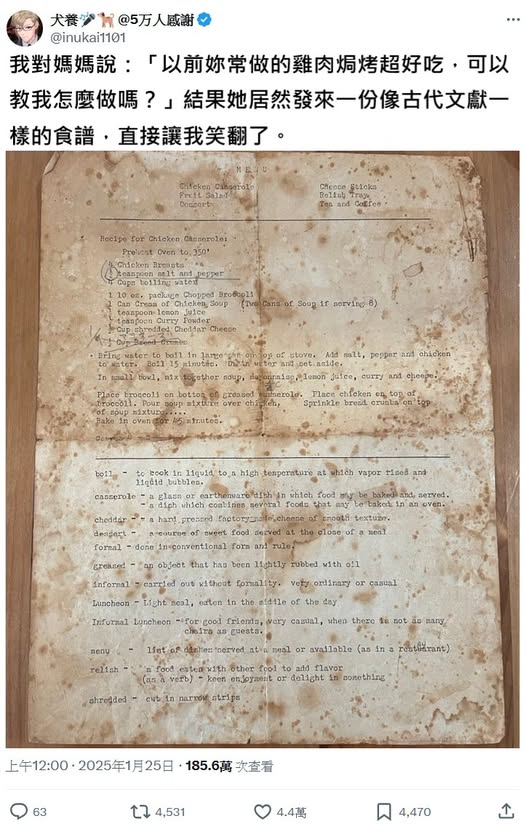 犬養 @5万人感謝
@inukai1101
我對媽媽說：「以前妳常做的雞肉焗烤超好吃，可以
教我怎麼做嗎？」結果她居然發來一份像古代文獻一
樣的食譜，直接讓我笑翻了。
MENU
Chicken Casserole Cheese Sticks
Fruit Salad Relish Tray
Dessert Tea and Coffee
Recipe for Chicken Casserole:
Preheat Oven to 350°
4 Chicken Breasts
1 teaspoon salt and pepper
4 Cups boiling water
1 10 oz. package Chopped Broccoli
1 Can Cream of Chicken Soup (Two Cans of Soup if serving 8)
1 teaspoon lemon juice
1 teaspoon Curry Powder
1 Cup shredded Cheddar Cheese
1 Cup Bread Crumbs
Bring water to boil in large on top of stove. Add salt, pepper and chicken
to water. Boil 15 minutes. water and set aside.
In small bowl, mix together soup, mayonnaise, lemon juice, curry and cheese.
Place broccoli on bottom of greased casserole. Place chicken on top of
broccoli. Pour soup mixture over chicken. Sprinkle bread crumbs on top
of soup mixture.....
Bake in oven for 45 minutes.
boil - to cook in liquid to a high temperature at which vapor rises and
liquid bubbles.
casserole - a glass or earthenware dish in which food may be baked and served.
- a dish which combines several foods that may be baked in an oven.
cheddar - a hard pressed factory made cheese of smooth texture.
dessert - a course of sweet food served at the close of a meal
formal - done in conventional form and rule.
greased - an object that has been lightly rubbed with oil
informal - carried out without formality. very ordinary or casual
Luncheon - Light meal, eaten in the middle of the day
Informal Luncheon - for good friends, very casual, when there is not as many
chairs as guests.
menu - list of dishes served at a meal or available (as in a restaurant)
relish - a food eaten with other food to add flavor
(as a verb) - keen enjoyment or delight in something
shredded - cut in narrow strips
上午12:00 · 2025年1月25日 · 185.6萬 次查看
63 4,531 4.4萬 4,470